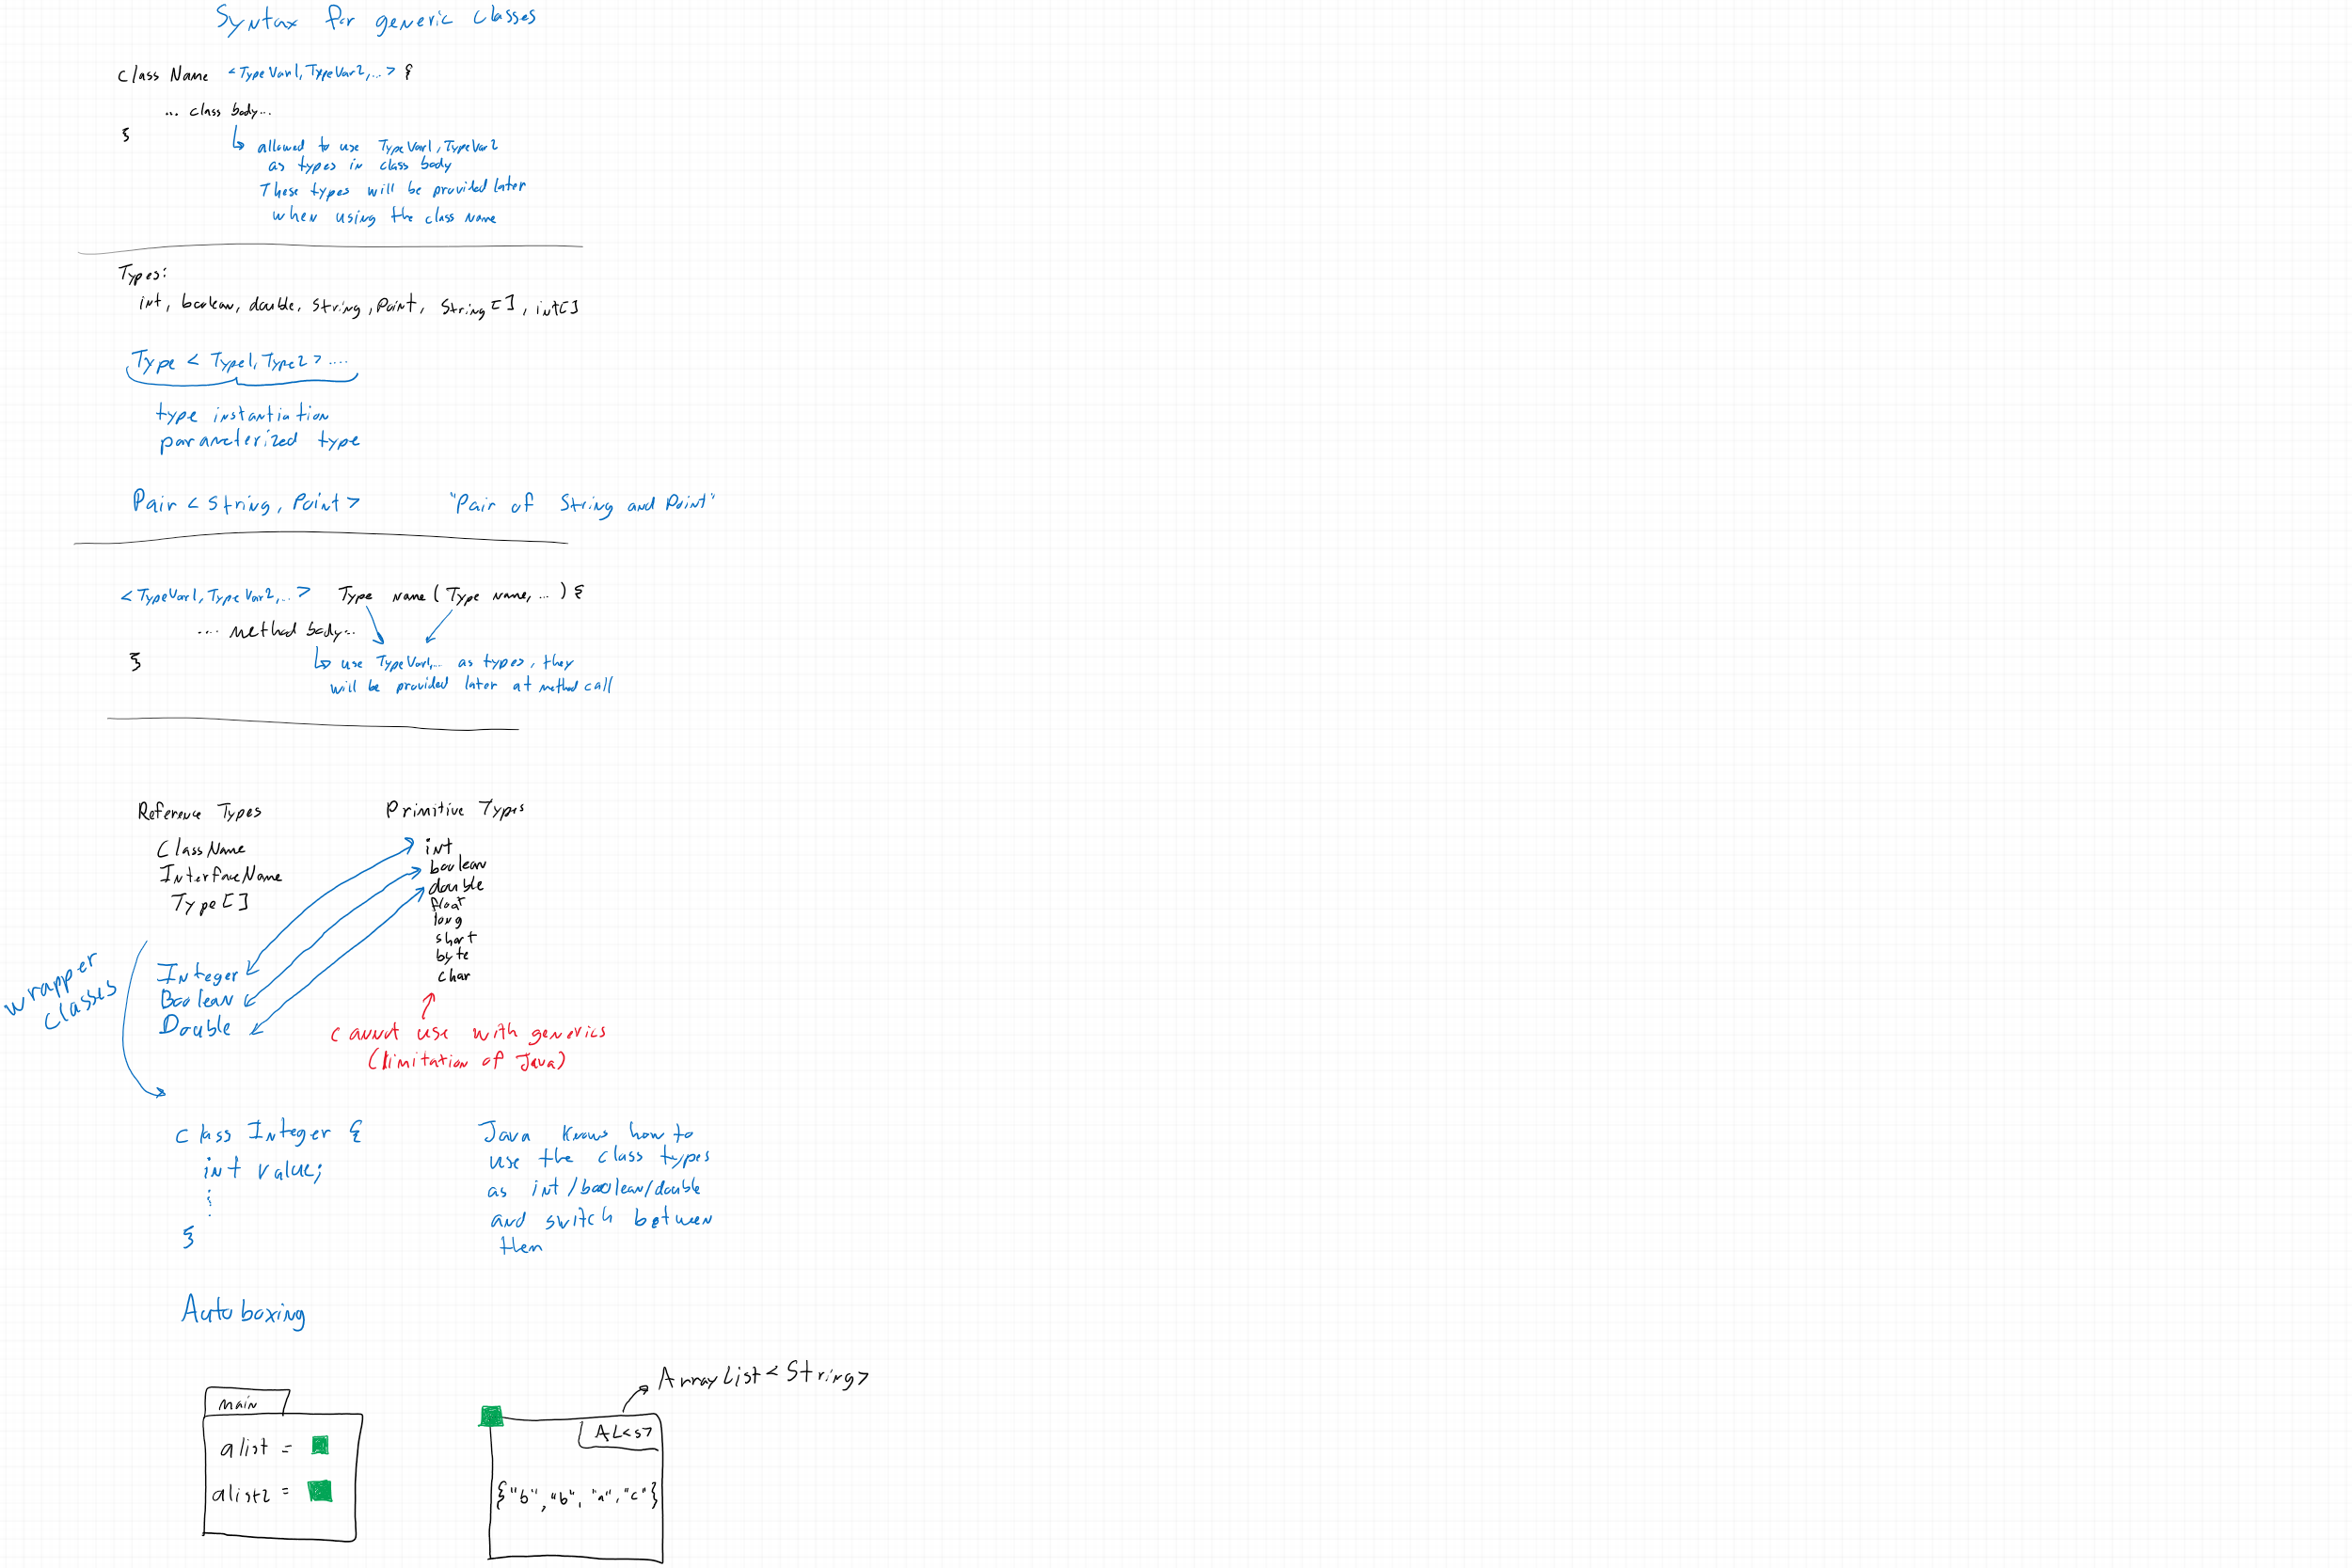 Syntax for generic classes
class Name <TypeVar1, TypeVar2,...> {
... class body...
}
↳ allowed to use TypeVar1, TypeVar2
as types in class body
These types will be provided later
when using the class name
Types:
int, boolean, double, String, Point, String[], int[]
Type < Type1, Type2 > ....
type instantiation
parameterized type
Pair < String, Point >
"Pair of String and Point"
<TypeVar1, TypeVar2,...> Type name (Type name, ...) {
.... method body...
}
↳ use TypeVar1,... as types, they
will be provided later at method call
Reference Types
ClassName
InterfaceName
Type[]
Primitive Types
int
boolean
double
float
long
short
byte
char
wrapper
classes
Integer
Boolean
Double
cannot use with generics
(limitation of Java)
class Integer {
int value;
⋮
}
Java knows how to
use the class types
as int/boolean/double
and switch between
them
Autoboxing
main
alist =
alist2 =
ArrayList<String>
AL<S>
{"b", "b", "a", "c"}